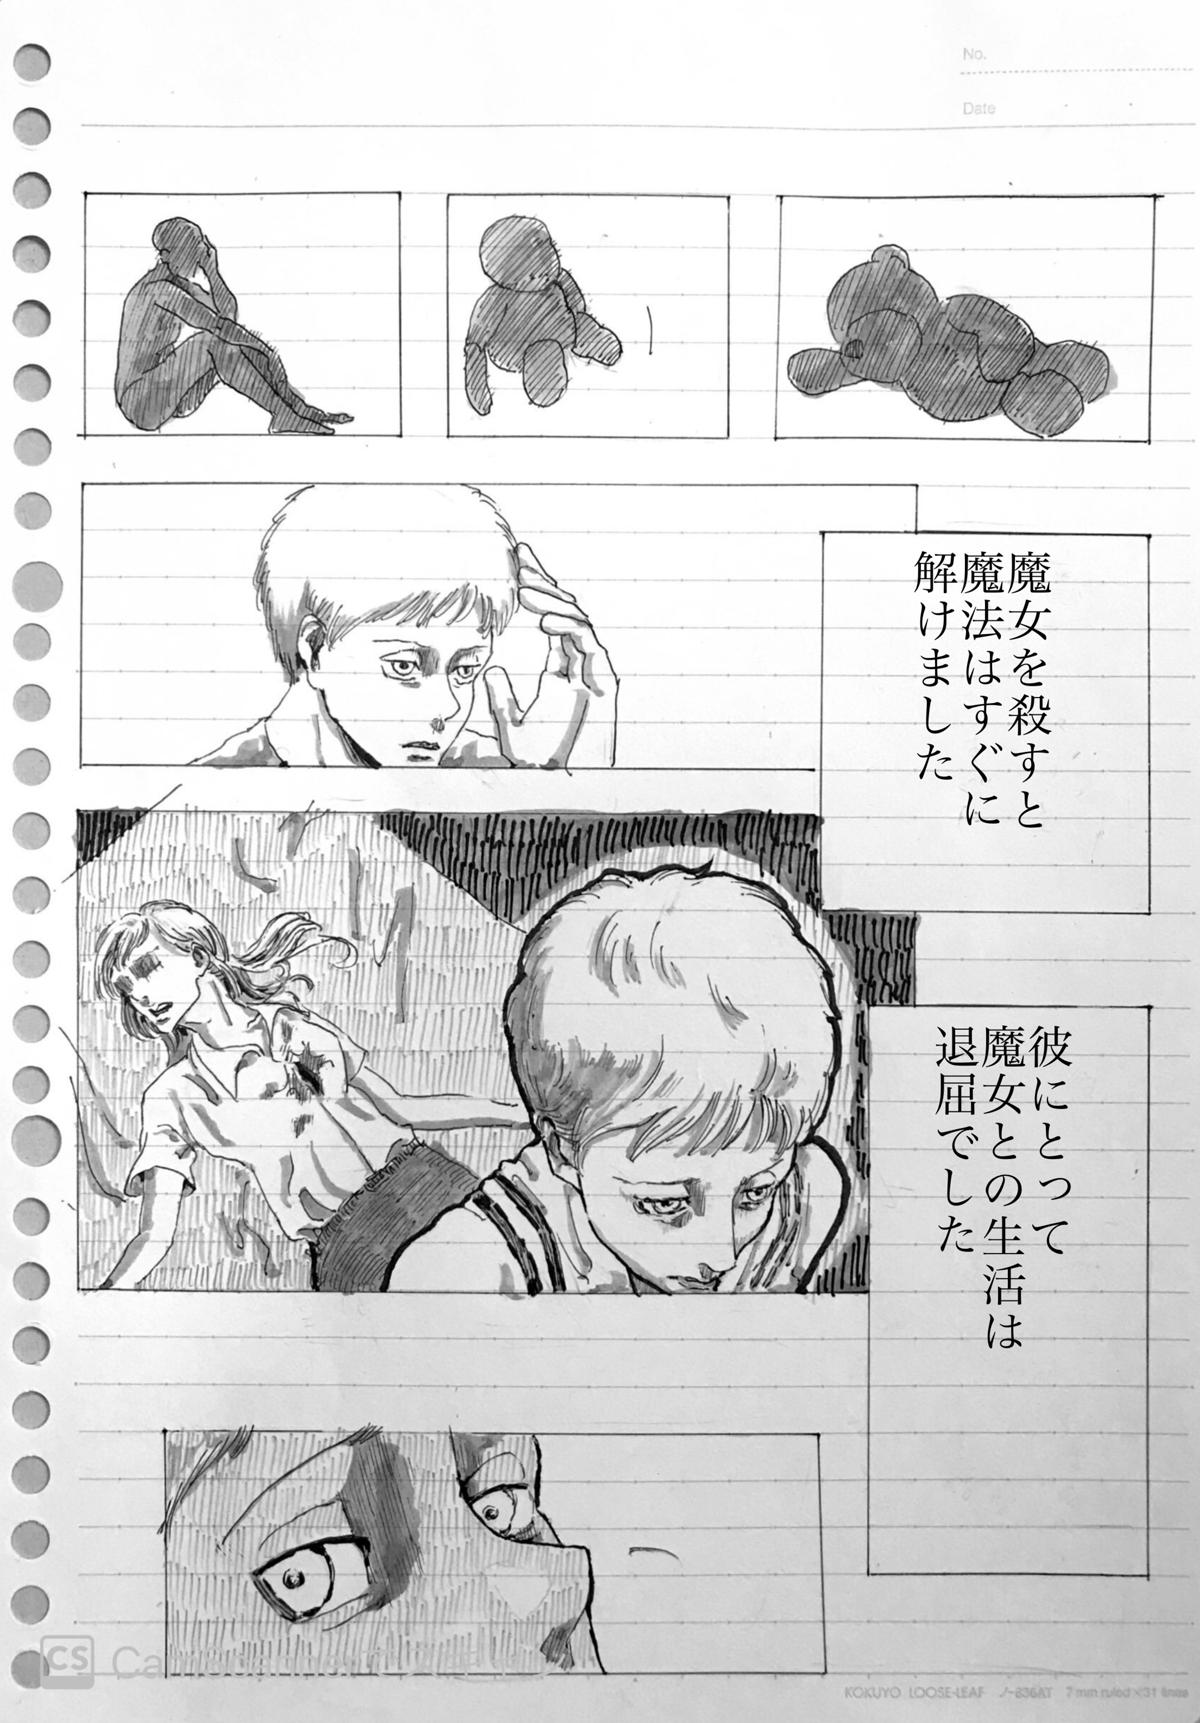 No.
Date
魔女を殺すと
魔法はすぐに
解けました
彼にとって
魔女との生活は
退屈でした
CS
KOKUYO LOOSE-LEAF ノ-836AT 7 mm ruled×31 lines